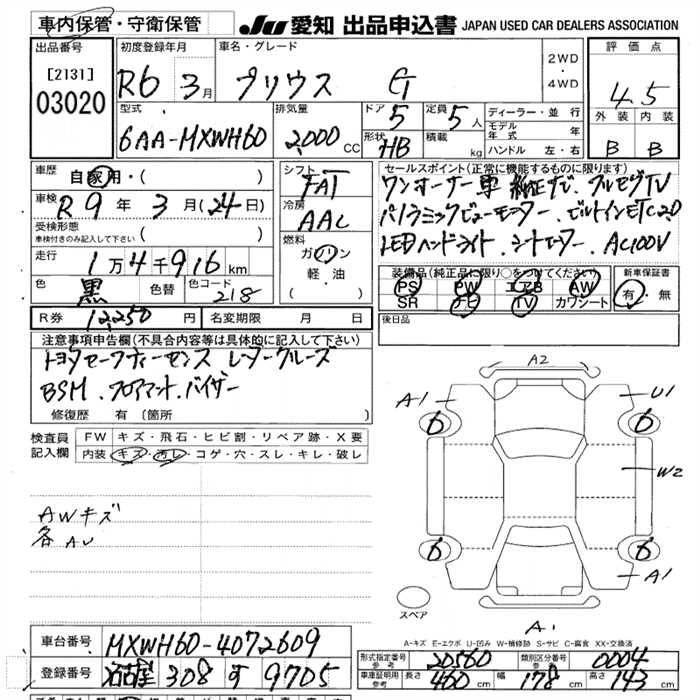 車内保管・守衛保管
JU 愛知 出品申込書 JAPAN USED CAR DEALERS ASSOCIATION
出品番号
[2131]
03020
初度登録年月
R6 3月
車名・グレード
プリウス G
2WD
・
4WD
評価点
4.5
外装 内装
B B
型式
6AA-MXWH60
排気量
2,000 CC
ドア
5
定員
5人
形状
HB
積載
kg
ディーラー・並行
モデル年式 年
ハンドル 左・右
車歴
自家用・( )
車検
R9年 3月(24日)
受検形態
車検付きのみ記入して下さい ( )
走行
1万4千916km
色
黒
色替
色コード
218
シフト
FAT
冷房
AAC
燃料
ガソリン
軽油
( )
セールスポイント(正常に機能するものに限ります)
ワンオーナー車 純正ナビ、フルセグTV
パノラミックビューモニター、ビルトインETC2.0
LEDヘッドライト、シートヒーター、AC100V
装備品(純正品に限り○をつけてください)
PS PW エアB AW
SR ナビ TV カワシート
新車保証書
有・無
R券 12,250円
名変期限 月 日
後日品
注意事項申告欄(不具合内容等は具体的に記入して下さい)
トヨタセーフティーセンス レーダークルーズ
BSM、フロアマット、バイザー
修復歴 有(箇所
検査員記入欄
FW キズ・飛石・ヒビ割・リペア跡・X要
内装 キズ・汚レ・コゲ・穴・スレ・キレ・破レ
AWキズ
各AV
A2
A1
U1
6
6
W2
6
6
A1
スペア
A1
A-キズ E-エクボ U-凹み W-補修跡 S-サビ C-腐食 XX-交換済
車台番号 MXWH60-4072609
登録番号 名古屋 308 す 9705
形式指定番号 参考 20560
類別区分番号 参考 0004
車庫証明用 参考 長さ 460cm 幅 178cm 高さ 143cm